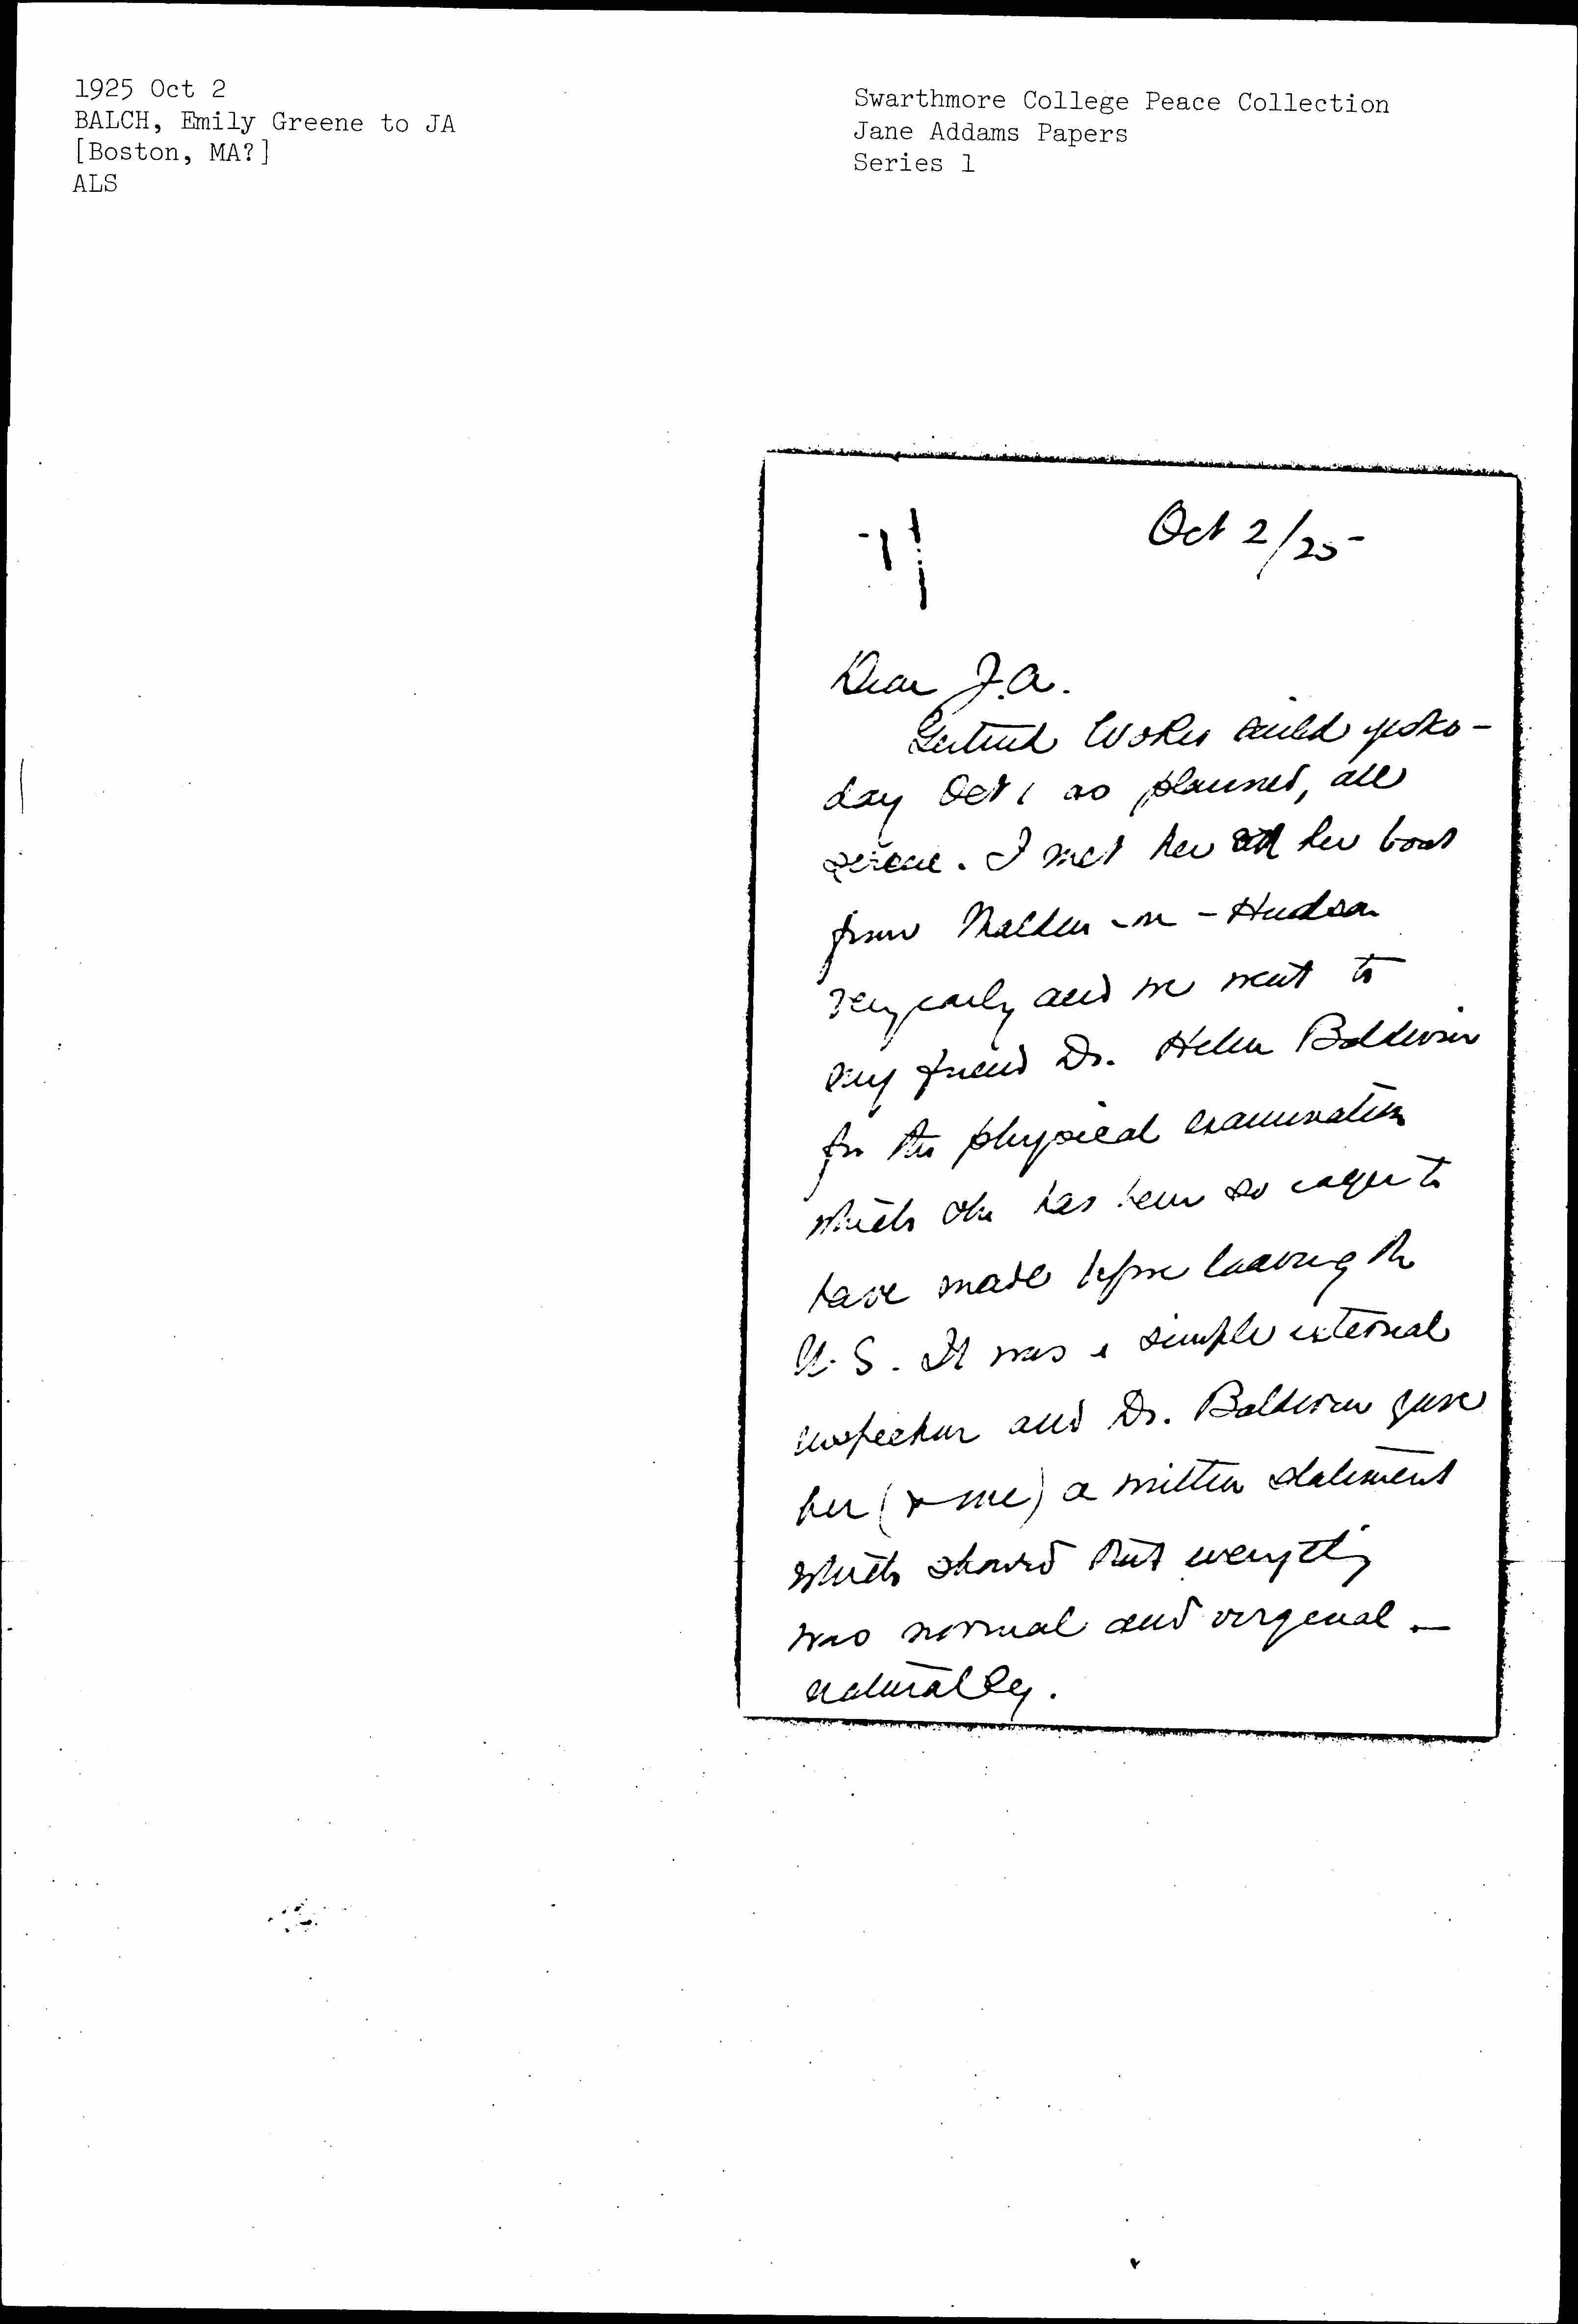 1925 Oct 2
BALCH, Emily Greene to JA
[Boston, MA?]
ALS
Swarthmore College Peace Collection
Jane Addams Papers
Series 1
Oct 2/25-
Dear J.A.
Gertrud sailed yester-
day Oct 1 as planned, all
serene. I met her at her boat
from Malden-on-Hudson
very early and we went to
my friend Dr. Helen Baldwin
for the physical examination
which she has been so eager to
have made before leaving the
U.S. It was a simple external
inspection and Dr. Baldwin gave
her (& me) a written statement
which showed that everything
was normal and virginal -
naturally.